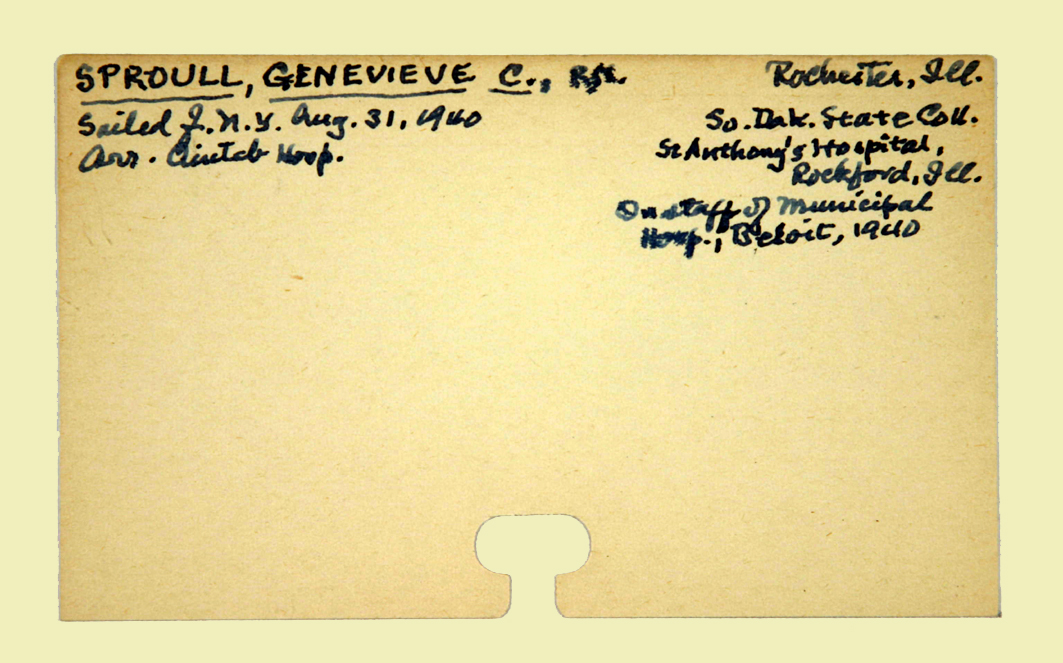 SPROULL, GENEVIEVE C., R.N. Rochester, Ill.
Sailed f. N.Y. Aug. 31, 1940 So. Dak. State Coll.
Arr. Aintab Hosp. St Anthony's Hospital,
Rockford, Ill.
On staff of Municipal
Hosp., Beloit, 1940